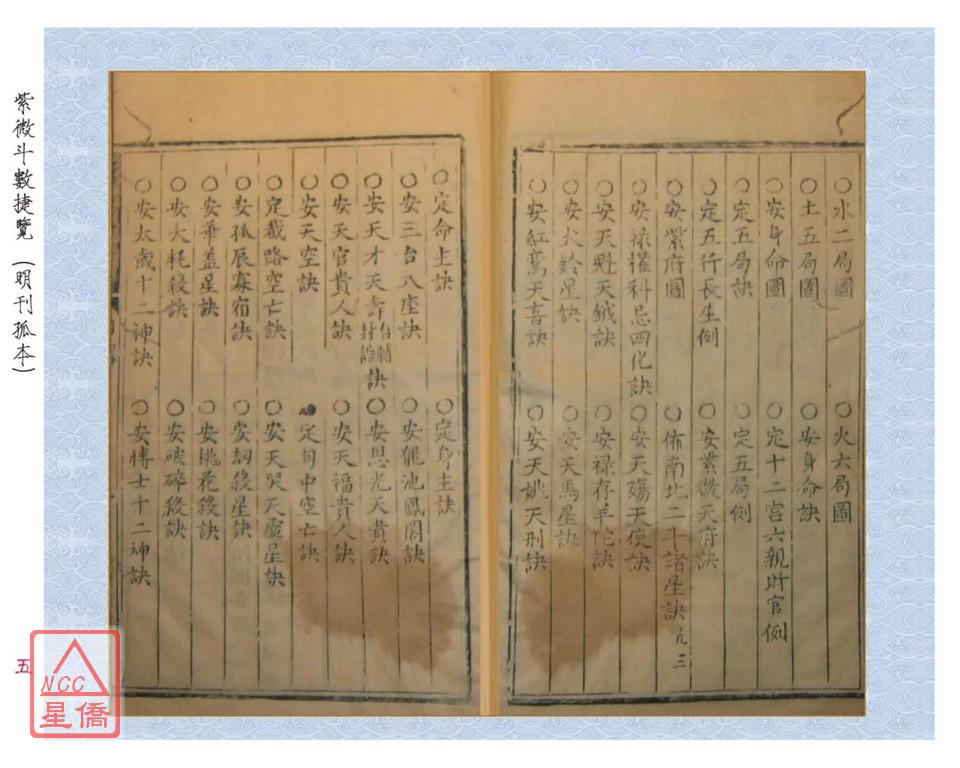 紫微斗數捷覽（明刊孤本）
○水二局圖 ○火六局圖
○土五局圖 ○安身命訣
○安身命圖 ○定十二宮六親財官例
○定五局訣 ○定五局例
○定五行長生例 ○安紫微天府訣
○安紫府圖 ○佈南北二斗諸星訣
○安祿權科忌四化訣 ○安天殤天使訣
○安天魁天鉞訣 ○安祿存羊陀訣
○安火鈴星訣 ○安天馬星訣
○安紅鸞天喜訣 ○安天姚天刑訣
○定命主訣 ○定身主訣
○安三台八座訣 ○安龍池鳳閣訣
○安天才天壽台輔封誥訣 ○安恩光天貴訣
○安天官貴人訣 ○安天福貴人訣
○安天空訣 定旬中空亡訣
○定截路空亡訣 ○安天哭天虛星訣
○安孤辰寡宿訣 ○安劫殺星訣
○安華盖星訣 ○安桃花殺訣
○安大耗殺訣 ○安破碎殺訣
○安太歲十二神訣 ○安博士十二神訣
五
NCC
星僑